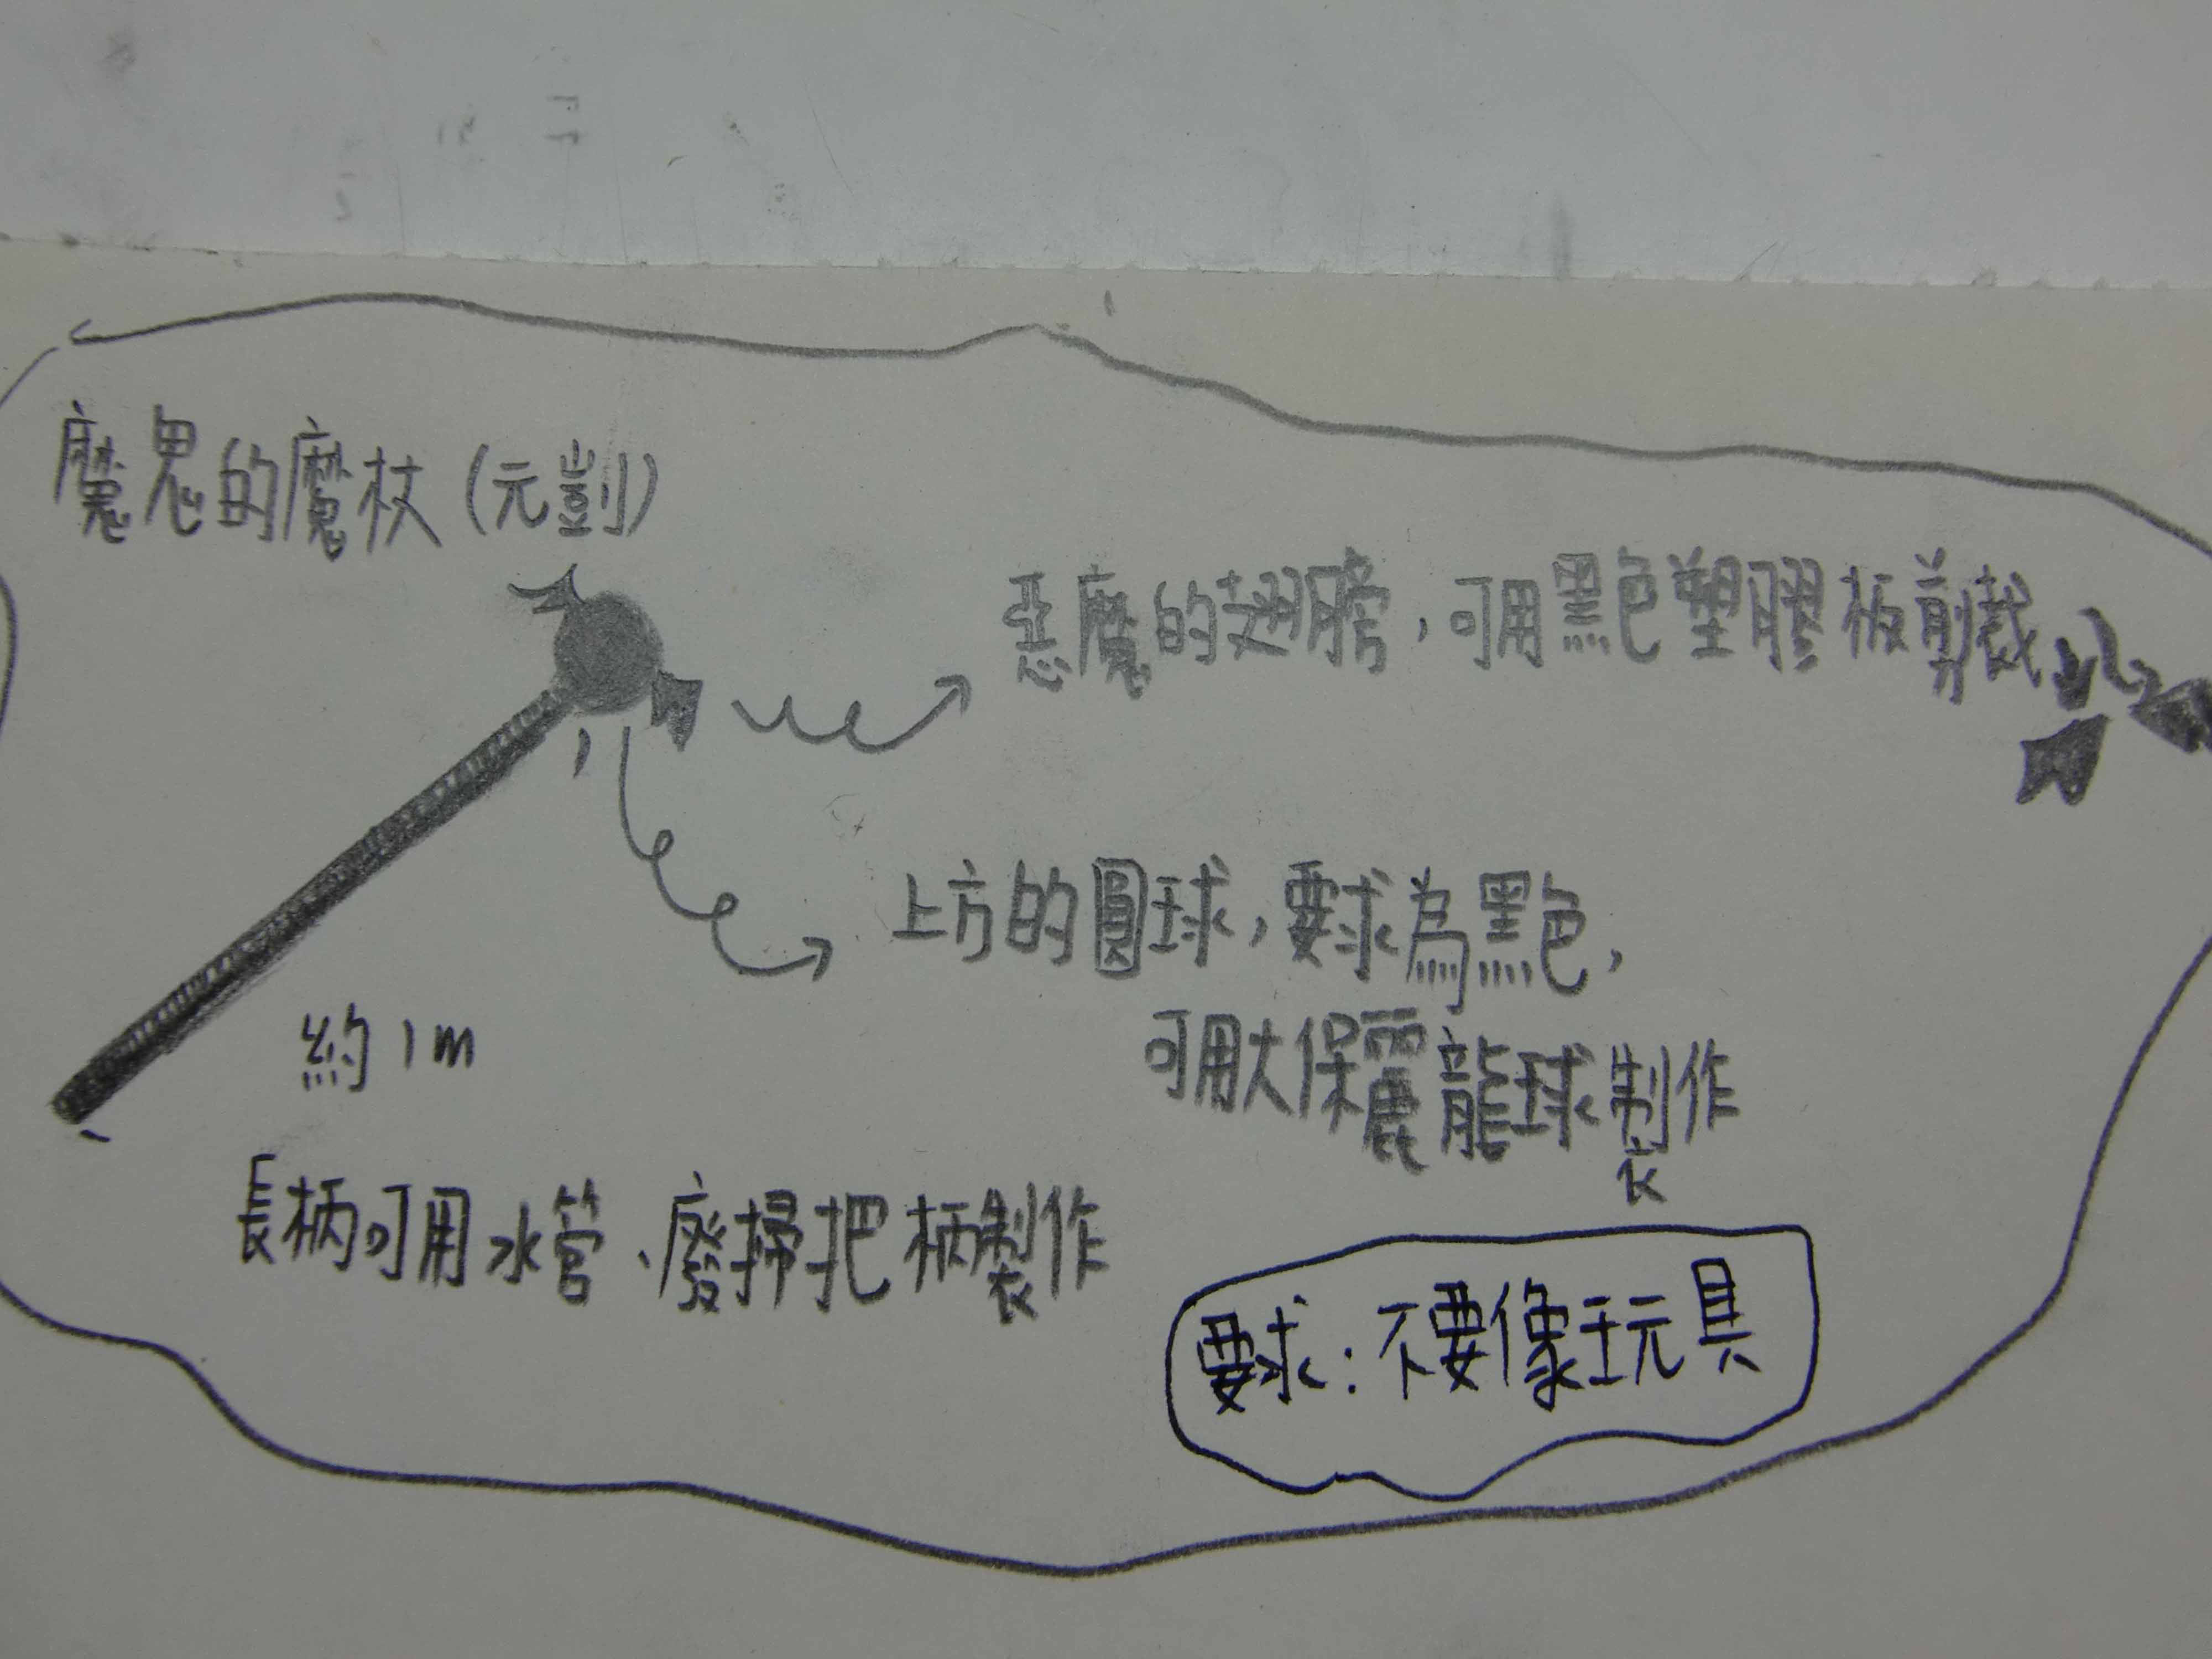 魔鬼的魔杖(元剴)
惡魔的翅膀，可用黑色塑膠板剪裁
上方的圓球，要求為黑色，
可用大保麗龍球製作
約1m
長柄可用水管、廢掃把柄製作
要求：不要像玩具